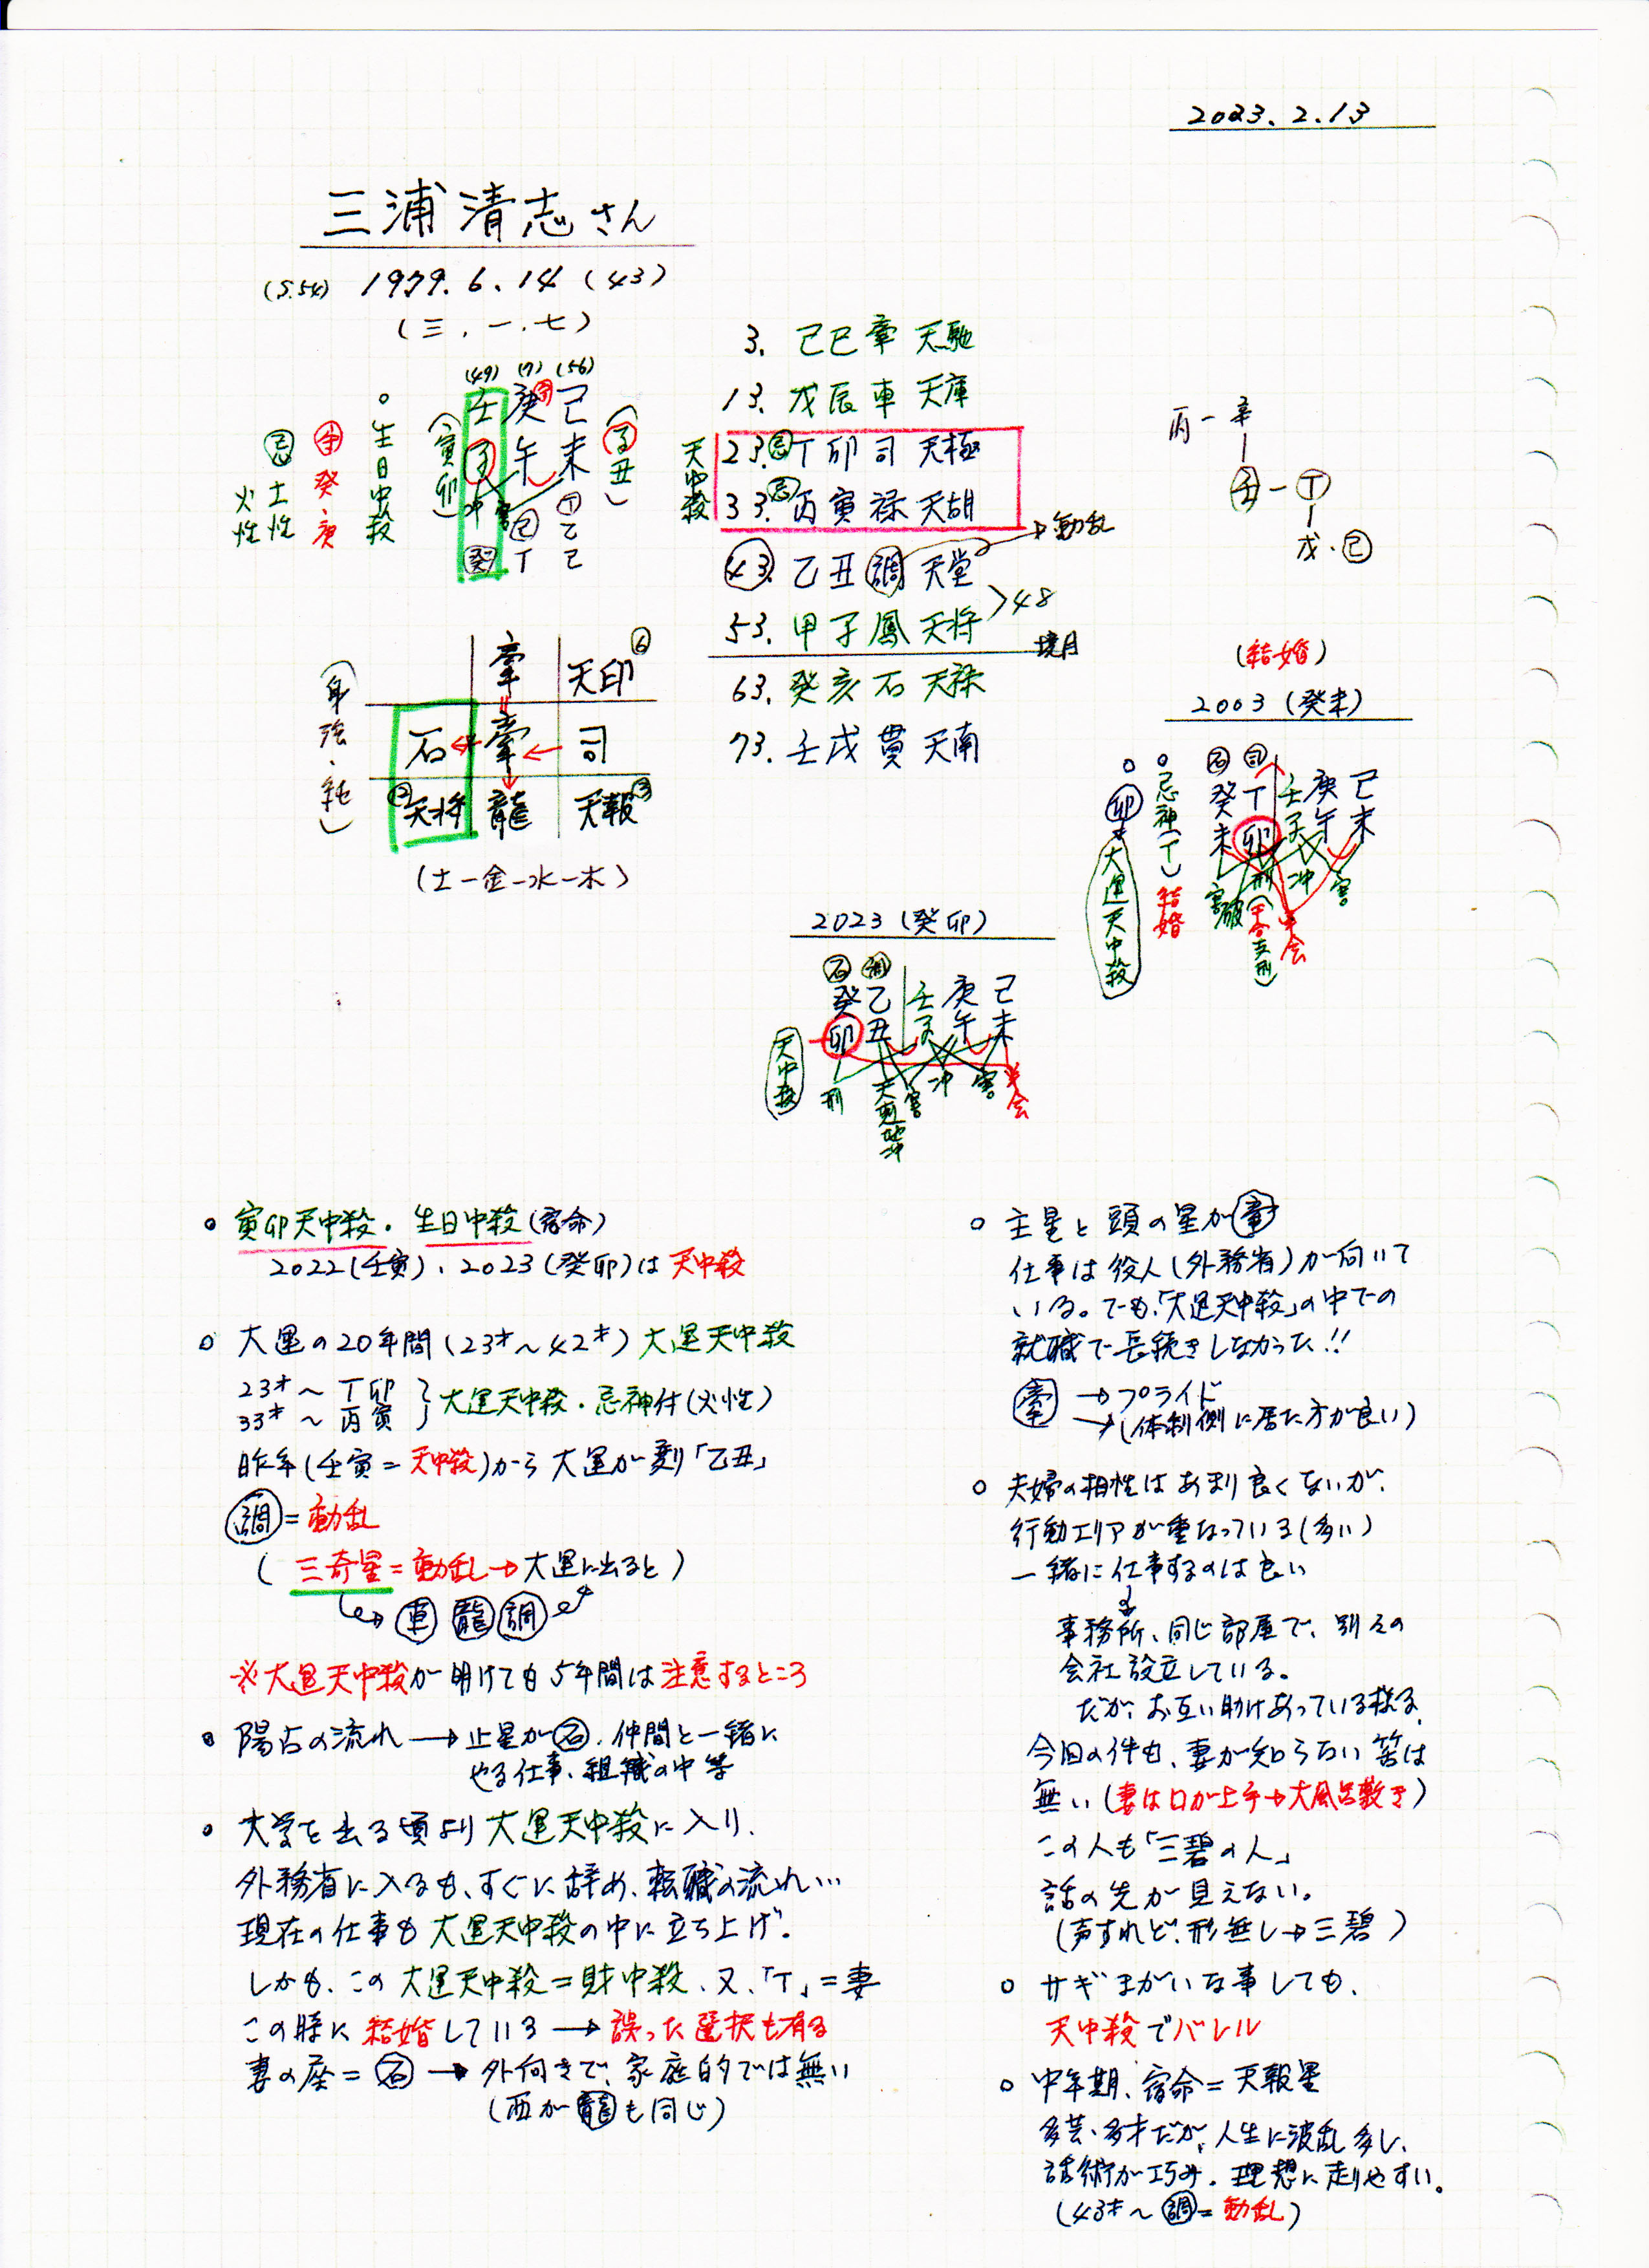 2023.2.13
三浦清志さん
(S.54) 1979.6.14 (43)
(三.一.七)
(49) (7) (56)
壬 庚 己
子 午 未
(寅卯)
(子丑)
冲 害
癸 己 丁
丁 乙
己
。生日中殺
守 癸 庚
忌 土性
火性
3. 己巳 牽 天馳
13. 戊辰 車 天庫
天中殺
23. 忌 丁卯 司 天極
33. 忌 丙寅 禄 天胡
43. 乙丑 調 天堂
→動乱
53. 甲子 鳳 天将
>48
境月
63. 癸亥 石 天禄
73. 壬戌 貫 天南
丙ー辛
壬ー丁
戊・己
(身強・純)
牽 天印 6
石 牽 司
天将 龍 天報 3
12
(土ー金ー水ー木)
(結婚)
2003 (癸未)
石 司
癸 丁 壬 庚 己
未 卯 子 午 未
害 破 刑 冲 害
半会
。忌神(丁) 結婚
。卯=大運天中殺
2023 (癸卯)
石 調
癸 乙 壬 庚 己
卯 丑 子 午 未
天中殺
刑 天剋地冲 害 冲 害 半会
。寅卯天中殺・生日中殺(宿命)
2022(壬寅)、2023(癸卯)は天中殺
。大運の20年間(23才〜42才)大運天中殺
23才〜丁卯
33才〜丙寅 } 大運天中殺・忌神付(火性)
昨年(壬寅=天中殺)から大運が変り「乙丑」
調=動乱
(三奇星=動乱→大運に出ると)
→車 龍 調
※大運天中殺が明けても5年間は注意するところ
。陽占の流れ→止星が石、仲間と一緒に
やる仕事、組織の中 等
。大学を出る頃より大運天中殺に入り、
外務省に入るも、すぐに辞め、転職の流れ…
現在の仕事も大運天中殺の中に立ち上げ。
しかも、この大運天中殺=財中殺、又、「丁」=妻
この時に結婚している→誤った選択も有る
妻の座=石→外向きで、家庭的では無い
(西が龍も同じ)
。主星と頭の星が牽
仕事は役人(外務省)が向いて
いる。でも、「大運天中殺」の中での
就職で長続きしなかった!!
牽→プライド
→(体制側に居た方が良い)
。夫婦の相性はあまり良くないが、
行動エリアが重なっている(多い)
一緒に仕事するのは良い
↓
事務所、同じ部屋で、別々の
会社設立している。
だが、お互い助けあっている様子。
今回の件も、妻が知らない筈は
無い(妻は口が上手→大風呂敷き)
この人も「三碧の人」
話の先が見えない。
(声すれど、形無し→三碧)
。サギまがいな事しても、
天中殺でバレル
。中年期、宿命=天報星
多芸・多才だが、人生に波乱多し、
話術が巧み、理想に走りやすい。
(43才〜調=動乱)